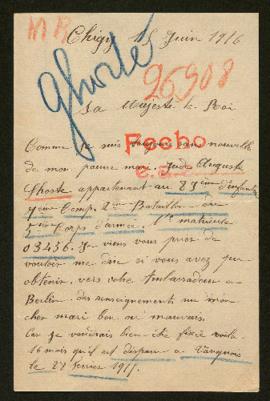 MR
Chigy 15 Juin 1916
Ghoste
26908
Sa Majesté le Roi
Fecho
Comme je suis toujours sans nouvelle
de mon pauvre mari Jude Auguste
Ghoste appartenant au 89ème d'infanterie
7ème Comp. 2me Bataillon au
5me Corps d'armée. Nº matricule
03436. Je viens vous prier de
vouloir me dire si vous avez pu
obtenir vers votre Ambassadeur à
Berlin des renseignements sur mon
cher mari bon ou mauvais.
Car je voudrais bien être fixée voilà
16 mois qu'il est disparu à Vauquois
le 28 février 1915.